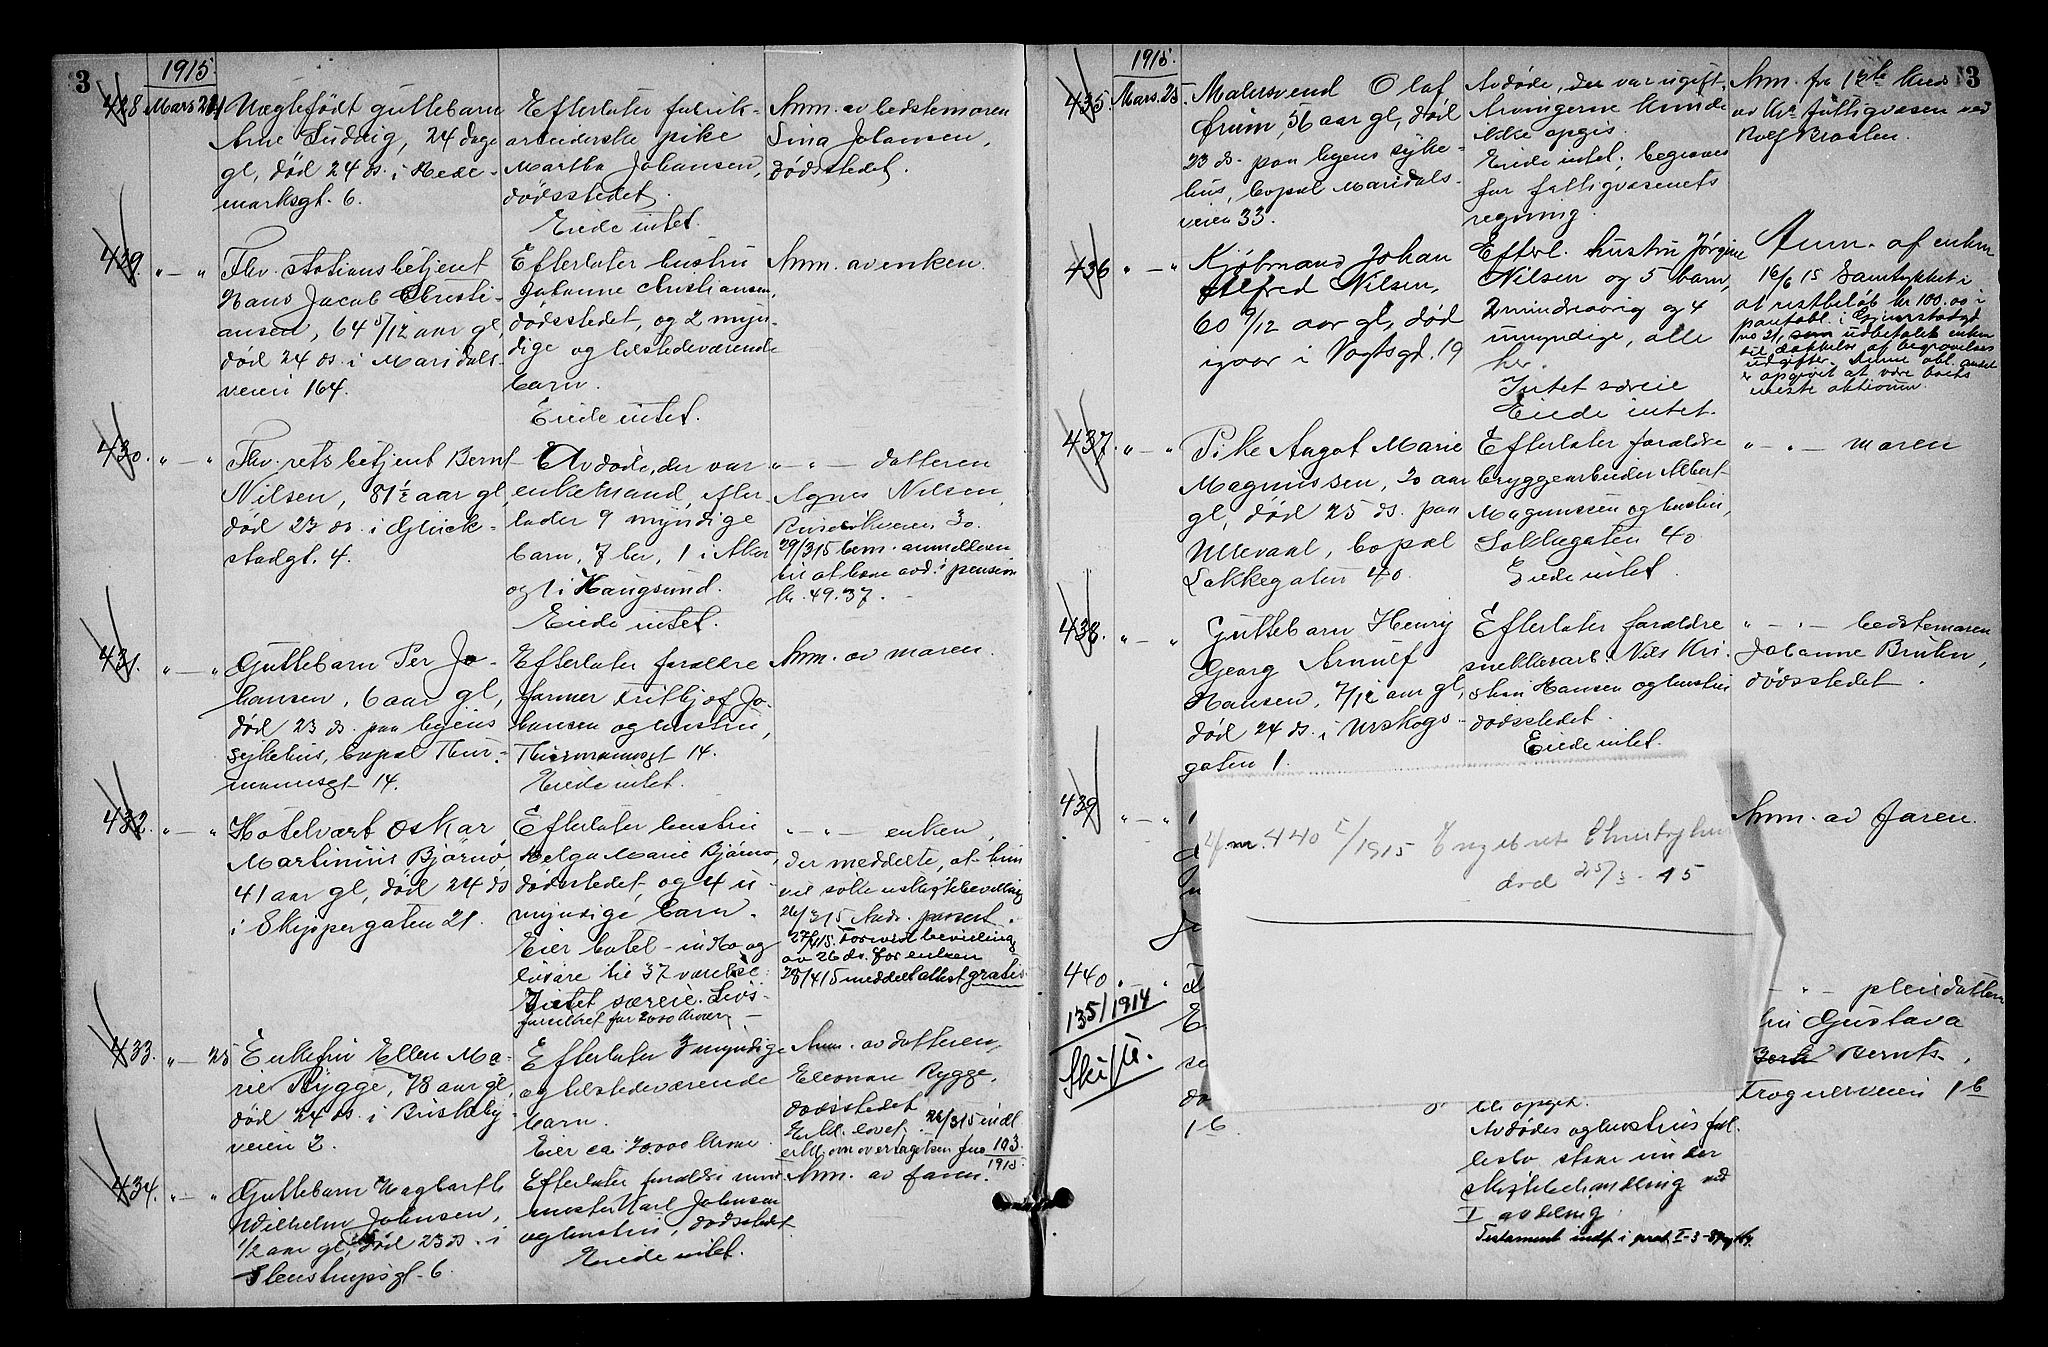 3
1915.
428 Mars 24
Uægtefødt guttebarn
Arne Ludvig, 24 dage
gl, død 24 ds. i Hede-
marksgt. 6.
Efterlater fabrik-
arbeiderske pike
Martha Johansen,
dødsstedet.
Eiede intet.
Anm. av bedstemoren
Lina Johansen,
dødsstedet.
429. " — "
Fhv. stationsbetjent
Hans Jacob Christi-
ansen, 64 5/12 aar gl,
død 24 ds. i Maridals-
veien 164.
Efterlater hustru
Johanne Christiansen,
dødsstedet, og 2 myn-
dige og tilstedeværende
barn.
Eiede intet.
Anm. av enken.
430. " — "
Fhv. retsbetjent Bernt
Nilsen, 81½ aar gl,
død 23 ds. i Glück-
stadgt. 4.
Avdøde, der var
enkemand, efter-
lader 9 myndige
barn, 7 her, 1 i Aker
og 1 i Haugsund.
Eiede intet.
" — " — datteren
Agnes Nilsen,
30.
29/3 15 bem. anmelderen
til at hæve avd.s pension
kr. 49.37.
431. " — "
Guttebarn Per Jo-
hansen, 6 aar gl,
død 23 ds. paa byens
sykehus, bopæl Thur-
mannsgt 14.
Efterlater forældre
farmer Frithjof Jo-
hansen og hustru,
Thurmannsgt 14.
Eiede intet.
Anm. av moren.
432. " — "
Hotelvært Oskar
Martinius Bjørnø,
41 aar gl, død 24 ds
i Skippergaten 21.
Efterlater hustru
Helga Marie Bjørnø,
dødsstedet og 4 u-
myndige barn.
Eier hotel-indbo og
løsøre til 37 værelser.
Intet særeie. Livs-
forsikret for 2000 kroner
" — " — enken,
der meddelte, at hun
vil søke uskiftebevilling
26/3 15 Avds. passert.
27/4 15. Forevist bevilling
av 26 ds. for enken
28/4 15 meddelt attest gratis
433. " — 25
Enkefru Ellen Ma-
rie Rygge, 78 aar gl,
død 24 ds. i Briskeby-
veien 2.
Efterlater 3 myndige
og tilstedeværende
barn.
Eier ca. 70.000 kroner.
Anm. av datteren,
Eleonore Rygge,
dødsstedet
Erkl. lovet. 26/3 15 indl.
erkl. om overtagelsen jno 103
1915.
434. " — "
Guttebarn Hagbarth
Wilhelm Johnsen,
1/2 aar gl, død 23 ds. i
Stenstrupsgt. 6.
Efterlater forældre mur-
mester Karl Johnsen
og hustru, dødsstedet
Eiede intet.
Anm. av faren.
3
1915.
435 Mars. 25.
Malersvend Olaf
56 aar gl, død
23 ds. paa byens syke-
hus, bopæl Maridals-
veien 33.
Avdøde, der var ugift.
Arvingerne kunde
ikke opgis.
Eiede intet; begraves
for fattigvæsenets
regning.
Anm. fra 13de kreds
av Kr.a fattigvæsen ved
Rolf Braaten.
436 " — "
Kjøbmand Johan
Alfred Nilsen,
60 9/12 aar gl, død
igaar i Vogtsgd. 19
Efterl. hustru Jørgine
Nilsen og 5 barn,
2 mindreaarig og 4
umyndige, alle
her.
Intet særeie
Eiede intet.
Anm. af enken
16/6 15 Samtykket i
at restbeløb kr 100.00 i
pantobl. i
no 21, som udbetales enken
til dækkelse af begravelses
udgifter. Denne obl.
er opgivet at være boets
eneste aktivum.
437. " — "
Pike Aagot Marie
Magnussen, 20 aar
gl, død 25 ds. paa
Ullevaal, bopæl
Lakkegaten 40.
Efterlater forældre
bryggearbeider Albert
Magnussen og hustru,
Lakkegaten 40
Eiede intet.
" — " — moren
438. " — "
Guttebarn Henry
Georg Arnulf
Hansen, 7/12 aar gl,
død 24 ds. i Urskogs-
gaten 1.
Efterlater forældre
snekkerarb. Nils Kri-
stian Hansen og hustru
dødsstedet.
Eiede intet.
" — " — bedstemoren
Johanne Bruhn,
dødsstedet.
439 " — "
Anm. av faren.
nr. 440 /1915 Engebret
død 25/3 - 15
440 " — "
135/1914
Skifte.
1b.
opgit.
Avdødes og hustrus fæl-
lesbo staar under
skiftebehandling ved
I avdeling.
Testament indt. i prot. I-3
" — " pleiedatteren
fru Gustava
Bernts,
Frognerveien 1b